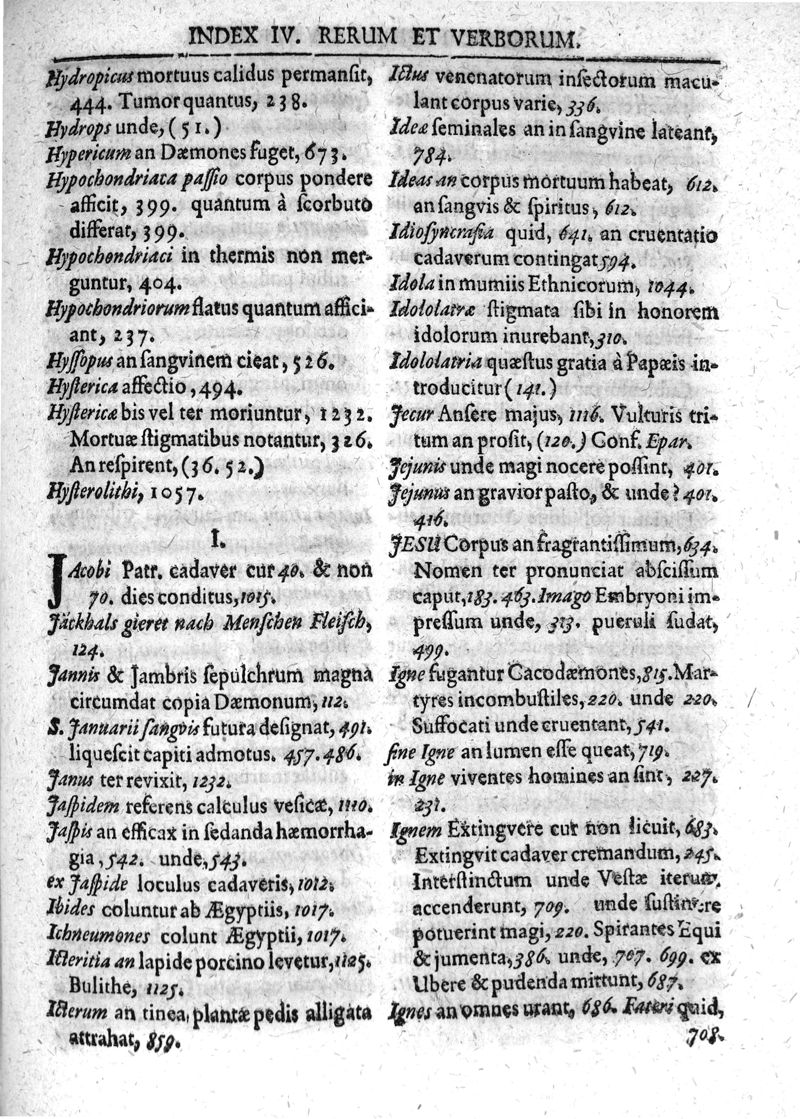 INDEX IV. RERUM ET VERBORUM.
Hydropicus mortuus calidus permanſit,
444. Tumor quantus, 238.
Hydrops unde, (51.)
Hypericum an Dæmones fuget, 673.
Hypochondriaca paſſio corpus pondere
afficit, 399. quantum à ſcorbuto
differat, 399.
Hypochondriaci in thermis non mer-
guntur, 404.
Hypochondriorum flatus quantum affici-
ant, 237.
Hyſſopus an ſangvinem cieat, 526.
Hyſterica affectio, 494.
Hyſtericæ bis vel ter moriuntur, 1232.
Mortuæ ſtigmatibus notantur, 326.
An reſpirent, (36. 52.)
Hyſterolithi, 1057.
I.
JAcobi Patr. cadaver cur 40. & non
70. dies conditus, 1015.
Jäckhals gieret nach Menſchen Fleiſch,
124.
Jannis & Jambris ſepulchrum magna
circumdat copia Dæmonum, 112.
S. Januarii ſangvis futura deſignat, 491.
liqueſcit capiti admotus. 457. 486.
Janus ter revixit, 1232.
Jaſpidem referens calculus veſicæ, 1110.
Jaſpis an efficax in ſedanda hæmorrha-
gia, 542. unde, 543.
ex Jaſpide loculus cadaveris, 1012.
Ibides coluntur ab Ægyptiis, 1017.
Ichneumones colunt Ægyptii, 1017.
Icteritia an lapide porcino levetur, 1125.
Bulithe, 1125.
Icterum an tinea, plantæ pedis alligata
attrahat, 859.
Ictus venenatorum inſectorum macu-
lant corpus varie, 336.
Ideæ ſeminales an in ſangvine lateant,
784.
Ideas an corpus mortuum habeat, 612.
an ſangvis & ſpiritus, 612.
Idioſyncraſia quid, 641. an cruentatio
cadaverum contingat 594.
Idola in mumiis Ethnicorum, 1044.
Idololatræ ſtigmata ſibi in honorem
idolorum inurebant, 310.
Idololatria quæſtus gratia à Papæis in-
troducitur (141.)
Jecur Anſere majus, 1116. Vulturis tri-
tum an proſit, (120.) Conf. Epar.
Jejunis unde magi nocere poſſint, 401.
Jejunus an gravior paſto, & unde? 401.
416.
JESU Corpus an fragrantiſſimum, 634.
Nomen ter pronunciat abſciſſum
caput, 183. 463. Imago Embryoni im-
preſſum unde, 313. pueruli ſudat,
499.
Igne fugantur Cacodæmones, 815. Mar-
tyres incombuſtiles, 220. unde 220.
Suffocati unde cruentant, 541.
ſine Igne an lumen eſſe queat, 719.
in Igne viventes homines an ſint, 227.
231.
Ignem Extingvere cur non licuit, 683.
Extingvit cadaver cremandum, 245.
Interſtinctum unde Veſtæ iterum
accenderunt, 709. unde ſuſtinere
potuerint magi, 220. Spirantes Equi
& jumenta, 386. unde, 707. 699. ex
Ubere & pudenda mittunt, 687.
Ignes an omnes urant, 686. Fateri quid,
708.